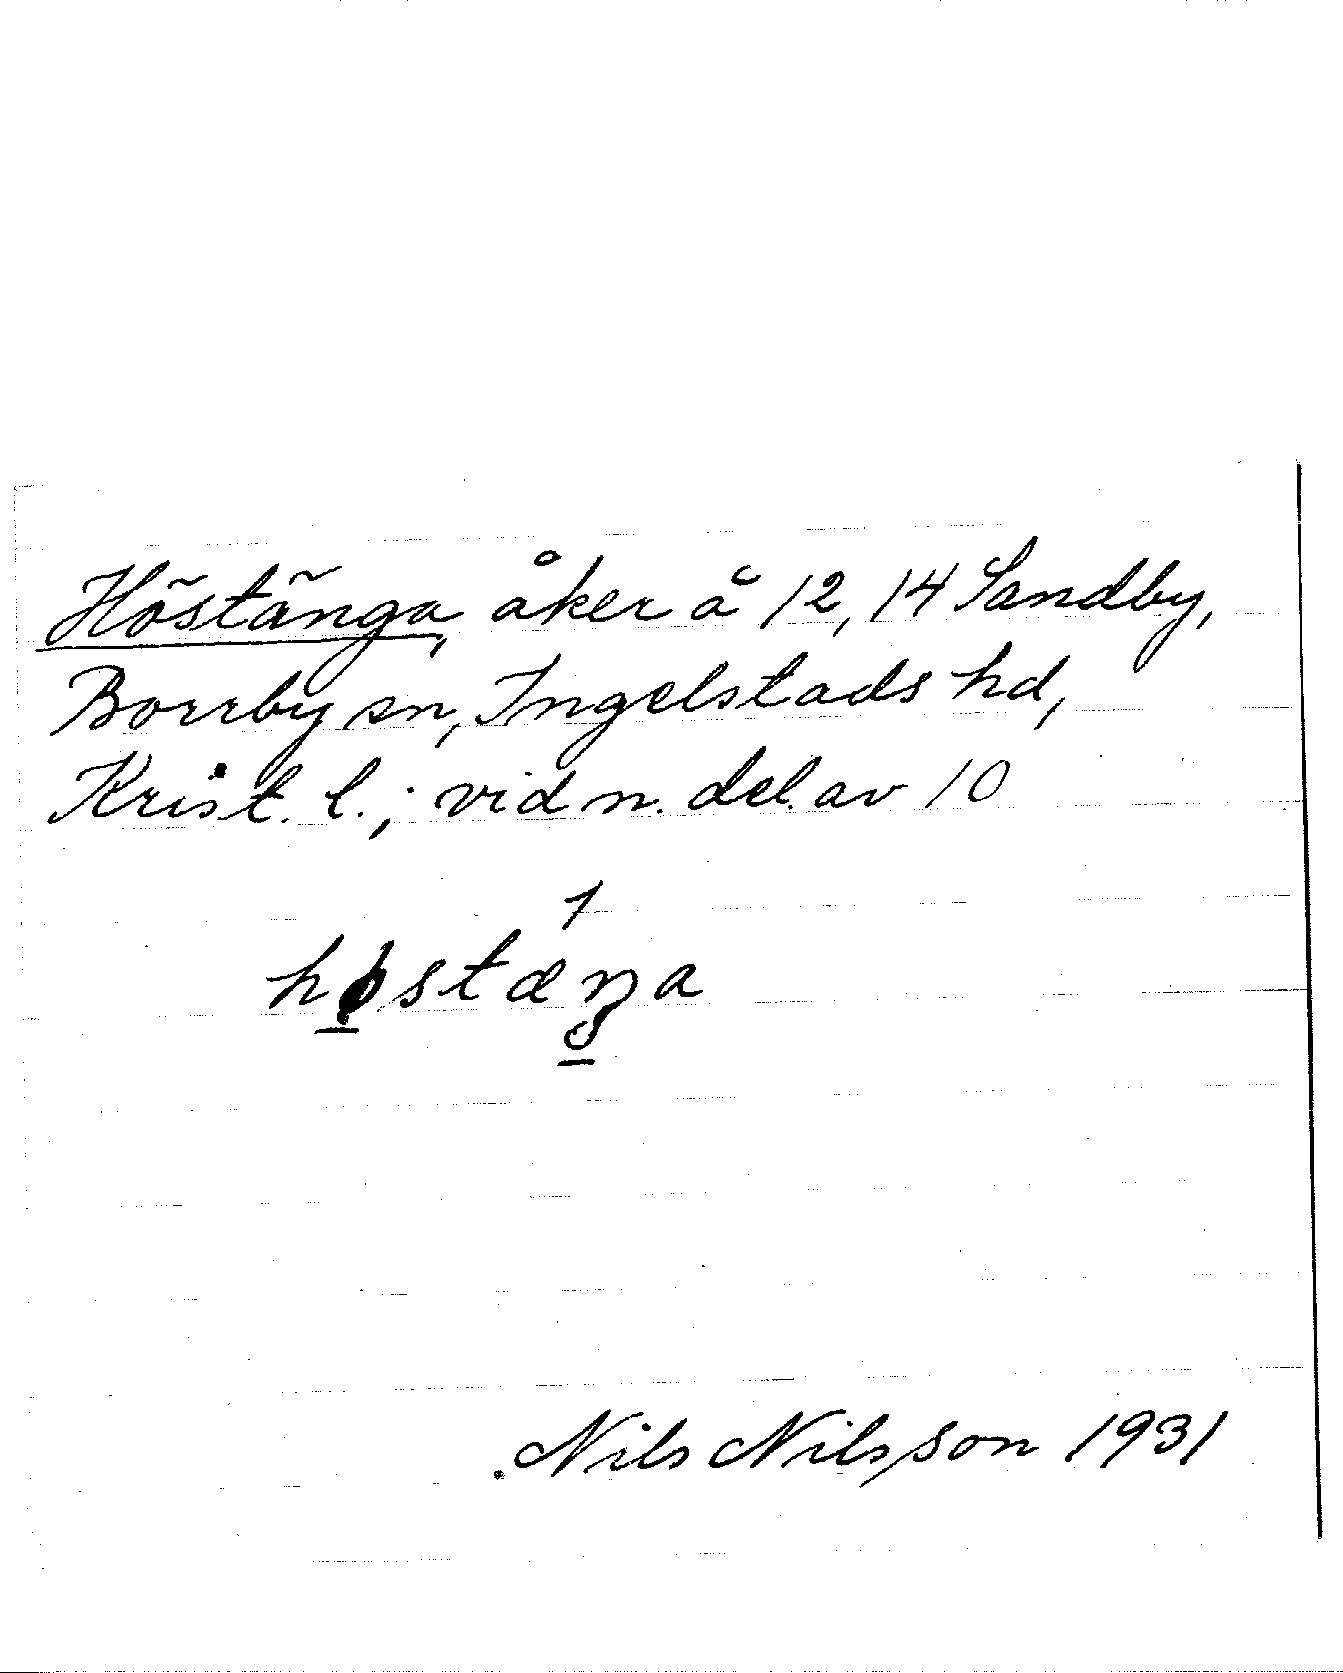 Höstänga, åker å 12, 14 Sandby,
Borrby sn, Ingelstads hd,
Krist. l.; vid n. del. av 10
Nils Nilsson 1931